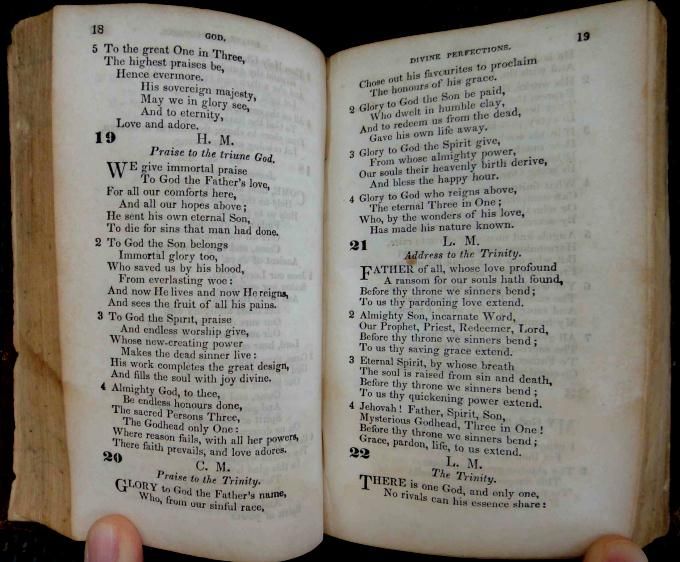 18
GOD.
5 To the great One in Three,
The highest praises be,
Hence evermore.
His sovereign majesty,
May we in glory see,
And to eternity,
Love and adore.
19 H. M.
Praise to the triune God.
WE give immortal praise
To God the Father's love,
For all our comforts here,
And all our hopes above;
He sent his own eternal Son,
To die for sins that man had done.
2 To God the Son belongs
Immortal glory too,
Who saved us by his blood,
From everlasting woe:
And now He lives and now He reigns,
And sees the fruit of all his pains.
3 To God the Spirit, praise
And endless worship give,
Whose new-creating power
Makes the dead sinner live:
His work completes the great design,
And fills the soul with joy divine.
4 Almighty God, to thee,
Be endless honours done,
The sacred Persons Three,
The Godhead only One:
Where reason fails, with all her powers,
There faith prevails, and love adores.
20 C. M.
Praise to the Trinity.
GLORY to God the Father's name,
Who, from our sinful race,
DIVINE PERFECTIONS.
19
Chose out his favourites to proclaim
The honours of his grace.
2 Glory to God the Son be paid,
Who dwelt in humble clay,
And to redeem us from the dead,
Gave his own life away.
3 Glory to God the Spirit give,
From whose almighty power,
Our souls their heavenly birth derive,
And bless the happy hour.
4 Glory to God who reigns above,
The eternal Three in One;
Who, by the wonders of his love,
Has made his nature known.
21 L. M.
Address to the Trinity.
FATHER of all, whose love profound
A ransom for our souls hath found,
Before thy throne we sinners bend;
To us thy pardoning love extend.
2 Almighty Son, incarnate Word,
Our Prophet, Priest, Redeemer, Lord,
Before thy throne we sinners bend;
To us thy saving grace extend.
3 Eternal Spirit, by whose breath
The soul is raised from sin and death,
Before thy throne we sinners bend;
To us thy quickening power extend.
4 Jehovah! Father, Spirit, Son,
Mysterious Godhead, Three in One!
Before thy throne we sinners bend;
Grace, pardon, life, to us extend.
22 L. M.
The Trinity.
THERE is one God, and only one,
No rivals can his essence share: